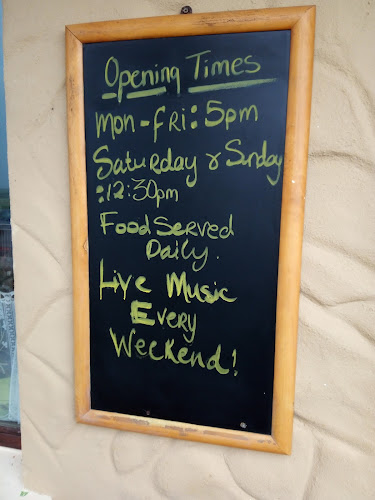 Opening Times
Mon - Fri: 5pm
Saturday & Sunday
:12:30pm
Food Served
Daily.
Live Music
Every
Weekend!